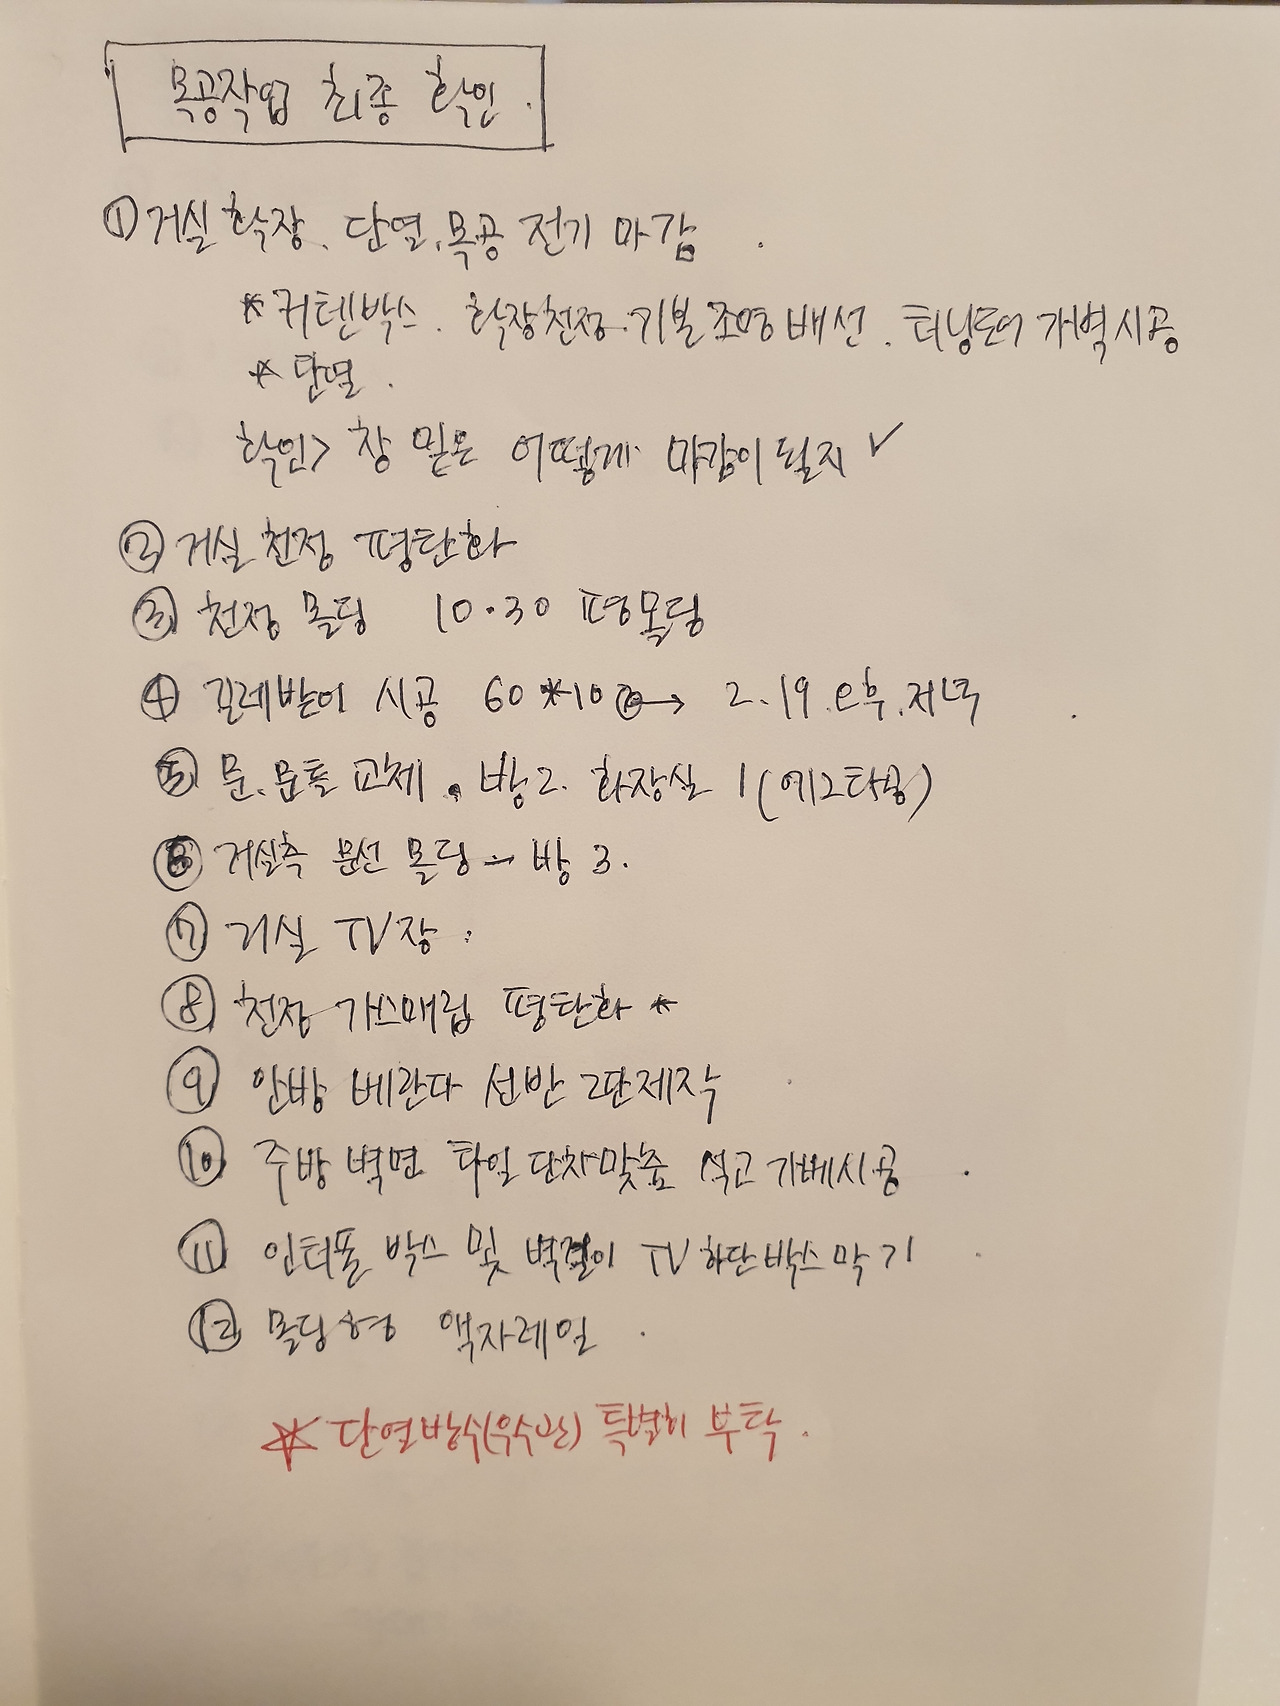 목공작업 최종 확인.
① 거실 확장. 단열. 목공 전기 마감.
* 커텐박스. 확장천정. 기본조명배선. 터닝도어 가벽시공
* 단열.
확인> 창 밑은 어떻게 마감이 될지 ✓
② 거실 천정 평탄화
③ 천정 몰딩 10·30 평몰딩
④ 걸레받이 시공 60*10 → 2.19.오후.저녁
⑤ 문.문틀 교체. 방2. 화장실 1(에고타공)
⑥ 거실측 문선 몰딩 - 방 3.
⑦ 거실 TV장.
⑧ 천정 가스매립 평탄화 *
⑨ 안방 베란다 선반 2단제작
⑩ 주방 벽면 타일 단차맞춤 석고 가베시공.
⑪ 인터폰 박스 및 벽걸이 TV 하단박스 막기
⑫ 몰딩형 액자레일.
* 단열방수(우수관) 특별히 부탁.